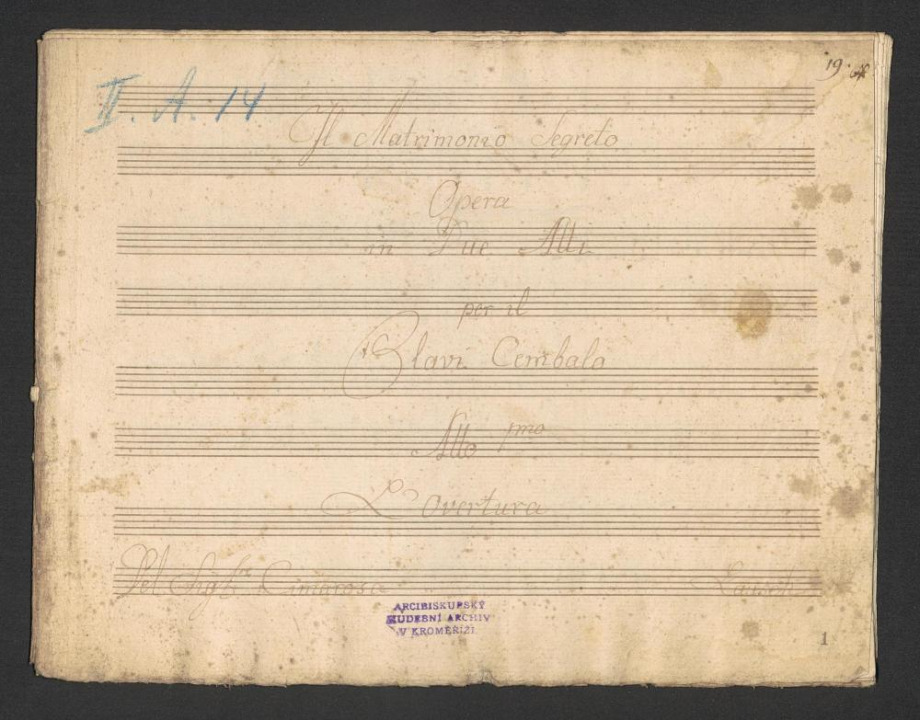 19.
II. A. 14
Il Matrimonio Segreto
Opera
in Due Atti
per il
Clavi Cembalo
Atto pmo
L'Overtura
Del Sigre Cimarosa
ARCIBISKUPSKÝ
HUDEBNÍ ARCHIV
V KROMĚŘÍŽI
1